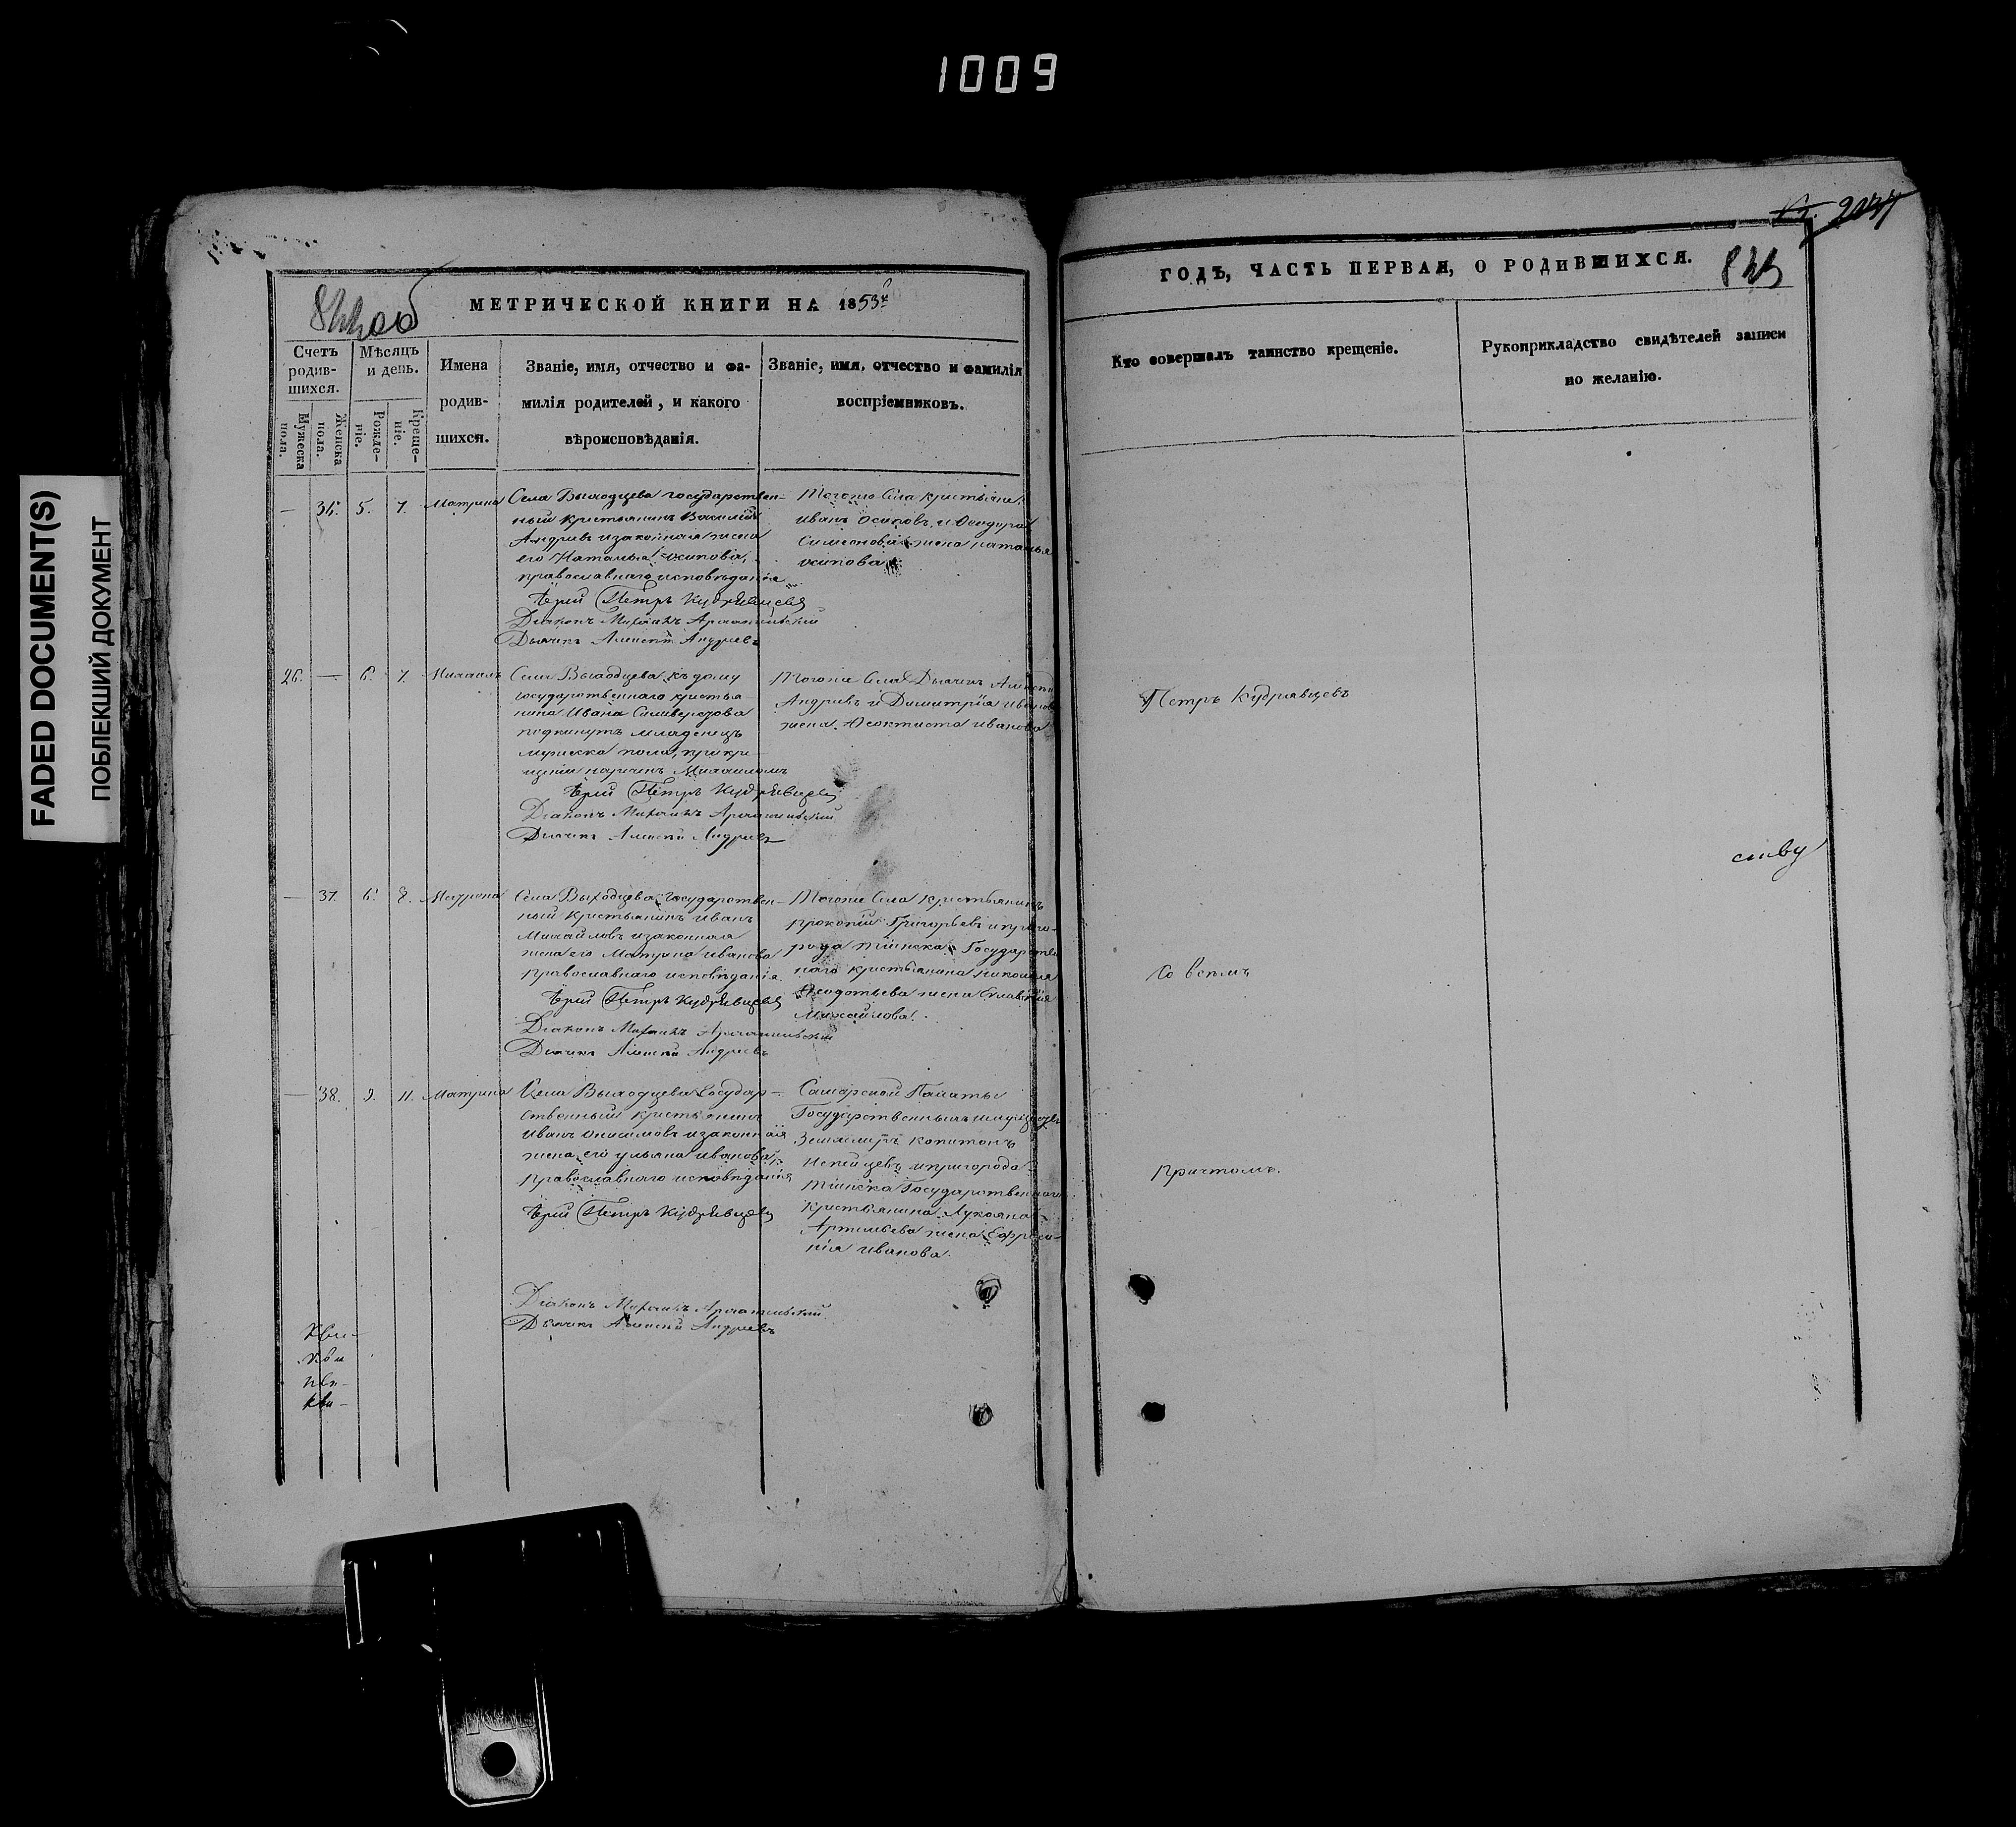 1009
FADED DOCUMENT(S)
ПОБЛЕКШИЙ ДОКУМЕНТ
МЕТРИЧЕСКОЙ КНИГИ НА 1853
Счетъ родив-шихся.
Мужеска пола.
Женска пола.
Мѣсяцъ и день.
Рожде-ніе.
Креще-ніе.
Имена родив-шихся.
Званіе, имя, отчество и фа-
милія родителей, и какого
вѣроисповѣданія.
Званіе, имя, отчество и фамилія
воспріемниковъ.
— 36. 5. 7. Матрина
Села Выходцева государствен-
ный крестьянинъ Василій
Андреевъ и законная жена
его Наталья Осипова,
православнаго исповѣданія
Іерей Петръ Кудрявцевъ
Діаконъ Михаилъ Архангельский
Дьячекъ Алексей Андреевъ
Тогоже Села крестьяне
Иванъ Осиповъ и Феодора
Симеонова жена Наталья
Осипова
26. — 6. 7. Михаилъ
Села Выходцева къ дому
государственнаго крестья-
нина Ивана Селиверстова
подкинутъ младенецъ
мужеска пола, при кре-
щеніи нареченъ Михаиломъ
Іерей Петръ Кудрявцевъ
Діаконъ Михаилъ Архангельский
Дьячекъ Алексей Андреевъ
Тогоже Села Дьячекъ Алексей
Андреевъ и Димитрія Иванова
жена Феоктиста Иванова
— 37. 6. 8. Матрона
Села Выходцева Государствен-
ный крестьянинъ Иванъ
Михайловъ и законная
жена его Матрина Иванова
православнаго исповѣданія
Іерей Петръ Кудрявцевъ
Діаконъ Михаилъ Архангельский
Дьячекъ Алексей Андреевъ
Тогоже Села крестьянинъ
Прокопій Григорьевъ и приго-
рода Тіинска Государствен
наго крестьянина Николая
Феодотьева жена
Михайлова.
— 38. 9. 11. Матрина
Села Выходцева Государ-
ственный крестьянинъ
Иванъ Онисимовъ и законная
жена его Ульяна Иванова,
православнаго исповѣданія
Іерей Петръ Кудрявцевъ
Діаконъ Михаилъ Архангельский
Дьячекъ Алексей Андреевъ
Самарской Палаты
Государственныхъ имуществъ
Землемѣръ Капитонъ
и пригорода
Тіинска Государственнаго
крестьянина Лукояна
Артемьева жена Ефроси-
нія Иванова.
ГОДЪ, ЧАСТЬ ПЕРВАЯ, О РОДИВШИХСЯ.
Кто совершалъ таинство крещеніе.
Рукоприкладство свидѣтелей записи
по желанію.
Петръ Кудрявцевъ
Со всѣмъ
причтомъ.